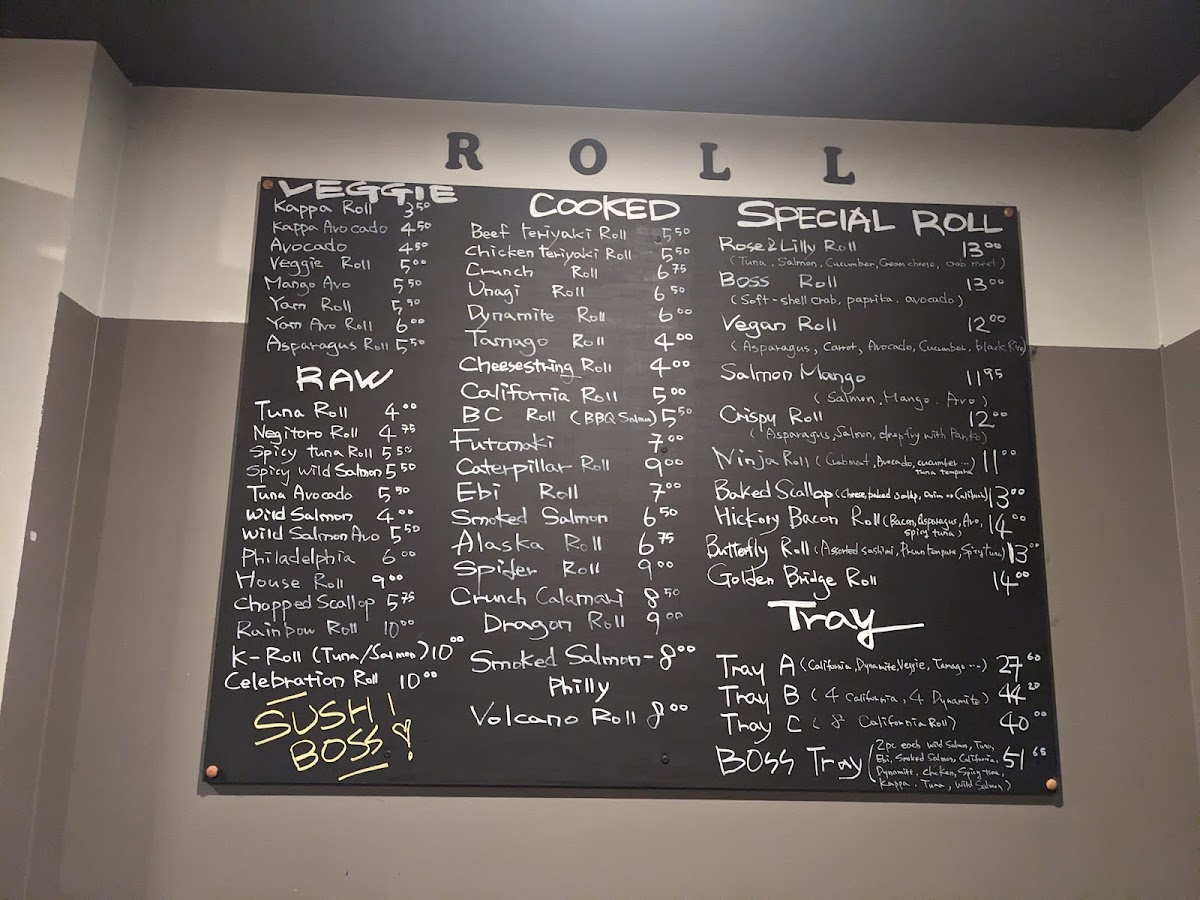 ROLL
VEGGIE
Kappa Roll 3.50
Kappa Avocado 4.50
Avocado 4.50
Veggie Roll 5.00
Mango Avo 5.50
Yam Roll 5.50
Yam Avo Roll 6.00
Asparagus Roll 5.50
RAW
Tuna Roll 4.00
Negitoro Roll 4.75
Spicy tuna Roll 5.50
Spicy wild Salmon 5.50
Tuna Avocado 5.50
Wild Salmon 4.00
Wild Salmon Avo 5.50
Philadelphia 6.00
House Roll 9.00
Chopped Scallop 5.75
Rainbow Roll 10.00
K-Roll (Tuna/Salmon) 10.00
Celebration Roll 10.00
SUSHI
BOSS!
COOKED
Beef teriyaki Roll 5.50
Chicken teriyaki Roll 5.50
Crunch Roll 6.75
Unagi Roll 6.50
Dynamite Roll 6.00
Tamago Roll 4.00
Cheesestring Roll 4.00
California Roll 5.00
BC Roll (BBQ Salmon) 5.50
Futomaki 7.00
Caterpillar Roll 9.00
Ebi Roll 7.00
Smoked Salmon 6.50
Alaska Roll 6.75
Spider Roll 9.00
Crunch Calamari 8.50
Dragon Roll 9.00
Smoked Salmon - 8.00
Philly
Volcano Roll 8.00
SPECIAL ROLL
Rose & Lilly Roll 13.00
(Tuna, Salmon, Cucumber, Cream cheese, crab meat)
Boss Roll 13.00
(Soft-shell crab, paprika, avocado)
Vegan Roll 12.00
(Asparagus, Carrot, Avocado, Cucumber, black Rice)
Salmon Mango 11.95
(Salmon, Mango, Avo)
Crispy Roll 12.00
(Asparagus, Salmon, deepfry with Panko)
Ninja Roll (Crabmeat, Avocado, cucumber... 11.00
tuna tempura)
Baked Scallop (cheese, baked scallop, on California) 13.00
Hickory Bacon Roll (Bacon, Asparagus, Avo, 14.00
spicy tuna)
Butterfly Roll (Assorted sashimi, Prawn tempura, Spicy tuna) 13.00
Golden Bridge Roll 14.00
Tray
Tray A (California, Dynamite, Veggie, Tamago ...) 27.60
Tray B (4 California, 4 Dynamite) 44.20
Tray C (8 California Roll) 40.00
BOSS Tray (2pc each wild Salmon, Tuna, 51.65
Ebi, Smoked Salmon, California,
Dynamite, chicken, Spicy tuna,
Kappa, Tuna, Wild Salmon)